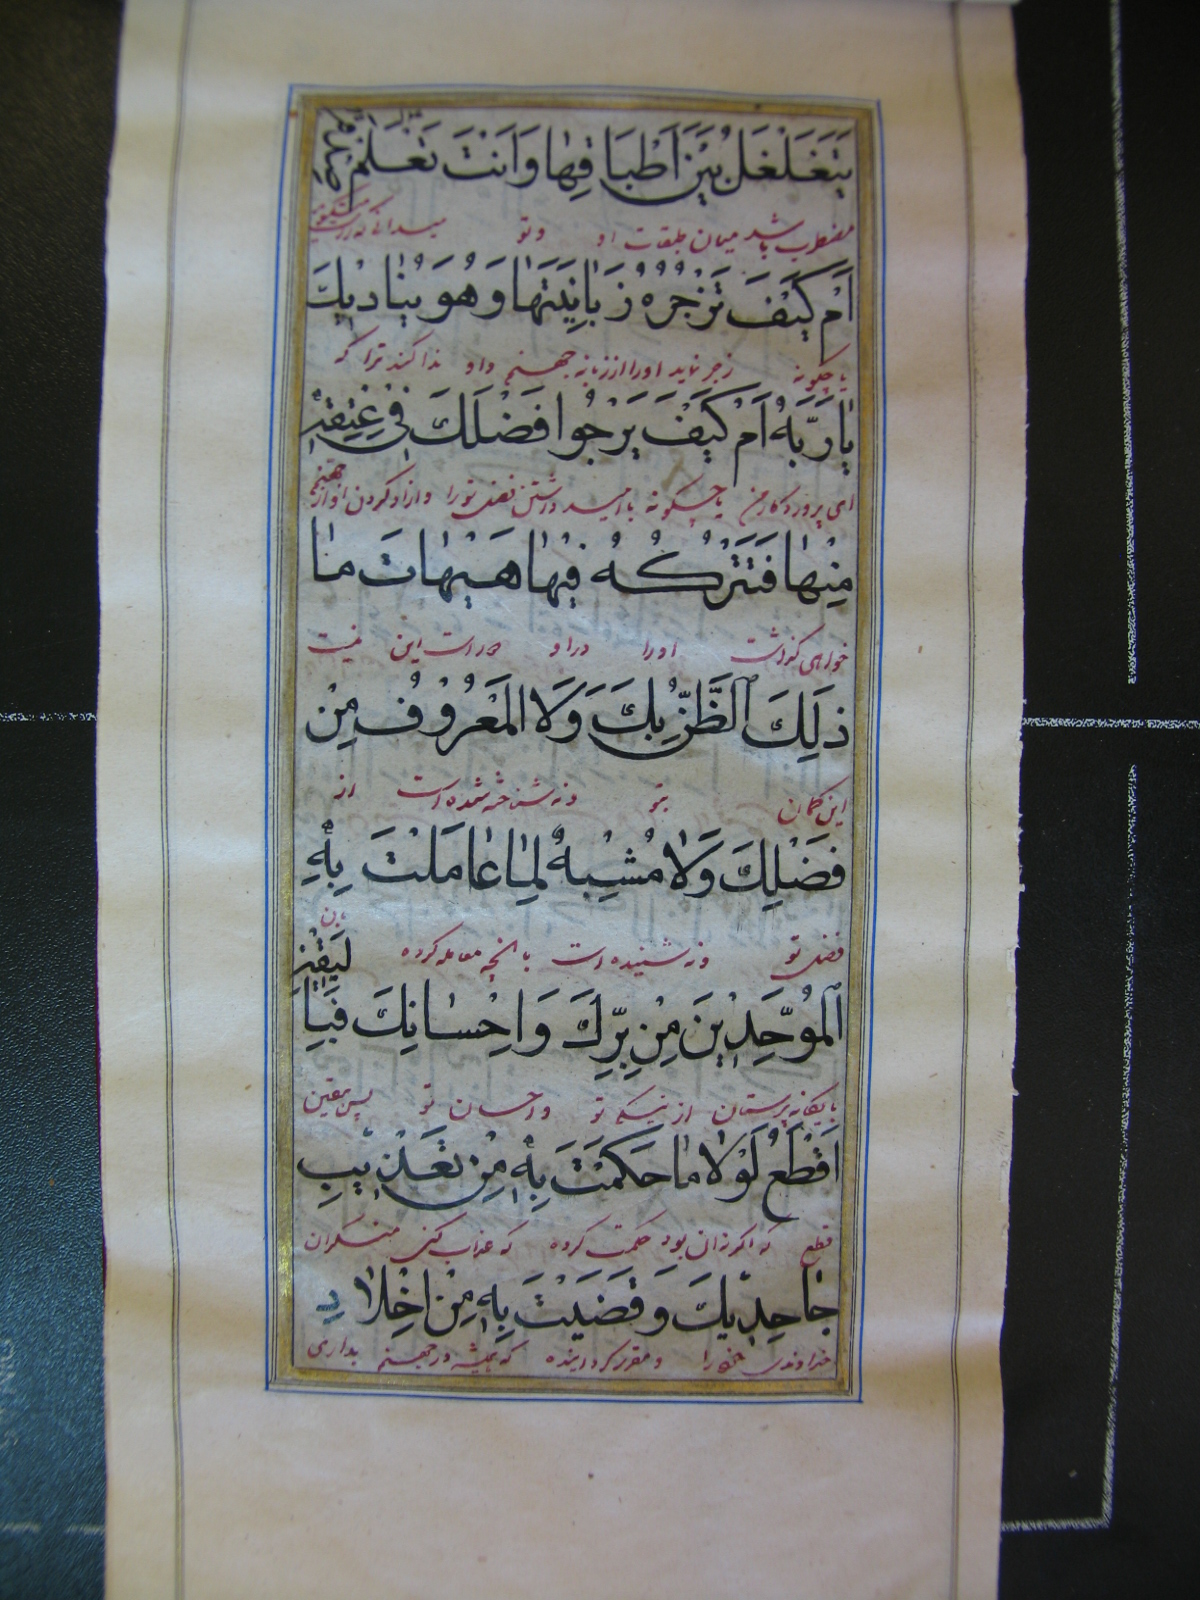 يَتَغَلْغَلُ بَيْنَ اَطْباقِها وَاَنْتَ تَعْلَمُ
مضطرب باشد میان طبقات او وتو میدانی که
اَمْ كَيْفَ تَزْجُرُهُ زَبانِيَتُها وَهُوَ يُناديكَ
یا چگونه زجر نماید اورا از زبانه جهنم واو ندا کند ترا که
يا رَبَّهُ اَمْ كَيْفَ يَرْجُوا فَضْلَكَ فى عِتْقِهِ
ای پروردکار من یا چگونه باامید داشتن فضل تورا وازاد کردن اورا از جهنم
مِنْها فَتَتْرُكُهُ فيها هَيْهاتَ ما
خواهی گذاشت اورا دراو دوراست این نیست
ذلِكَ الظَّنُّ بِكَ وَلَا الْمَعْرُوفُ مِنْ
این کمان بتو ونه شناخته شده است از
فَضْلِكَ وَلا مُشْبِهُ لِما عامَلْتَ بِهِ
فضل تو ونه شنیده است بانچه معامله کرده بان
الْمُوَحِّدينَ مِنْ بِرِّكَ وَاِحْسانِكَ فَبِالْيَقينِ
با یکانه پرستان از نیکی تو واحسان تو پس بیقین
اَقْطَعُ لَوْلا ما حَكَمْتَ بِهِ مِنْ تَعْذيبِ
قطع که اکرنه ان بود حکمت کرده که عذاب کنی منکران
جاحِديكَ وَقَضَيْتَ بِهِ مِنْ اِخْلادِ
خداوندی خودرا ومقرر کردانیده که همیشه در جهنم بداری